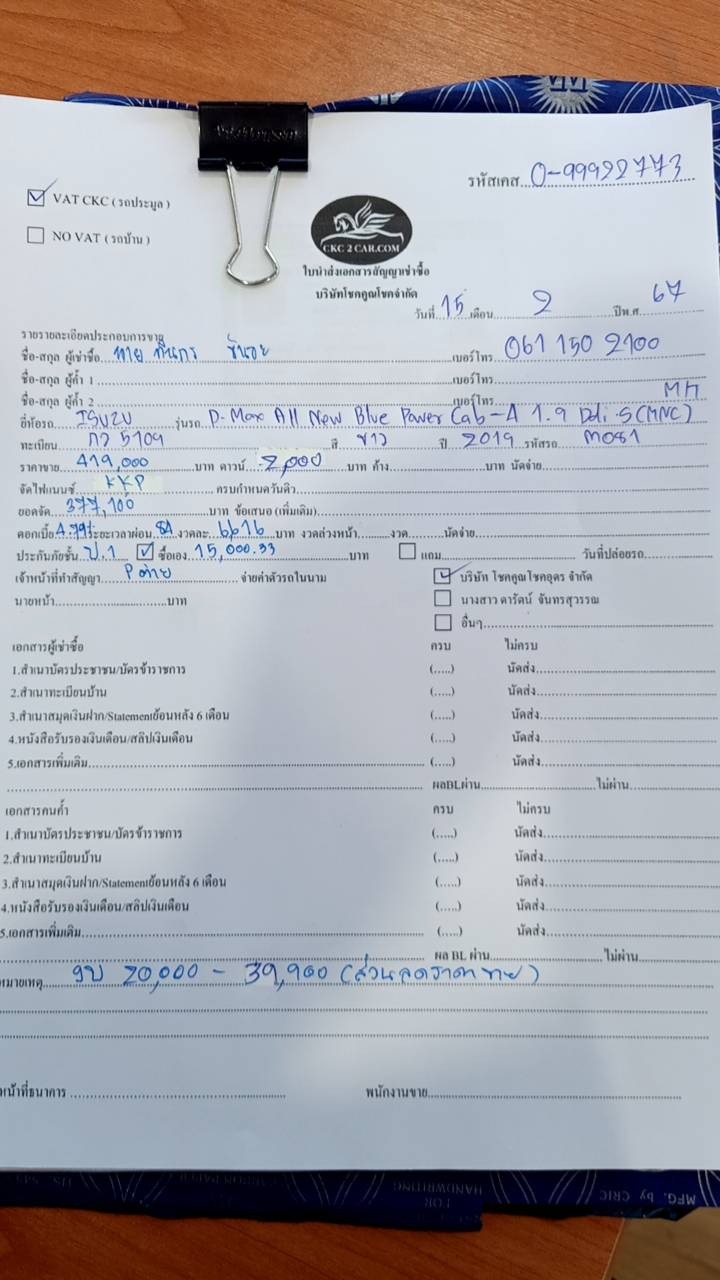 รหัสเคส...0-99922773
☑ VAT CKC ( รถประมูล )
☐ NO VAT ( รถบ้าน )
CKC 2 CAR.COM
ใบนำส่งเอกสารสัญญาเช่าซื้อ
บริษัทโชคคูณโชคจำกัด
วันที่ 15 เดือน 2 ปีพ.ศ 67
รายรายละเอียดประกอบการขาย
ชื่อ-สกุล ผู้เช่าซื้อ เบอร์โทร 061 150 2100
ชื่อ-สกุล ผู้ค้ำ 1 เบอร์โทร
ชื่อ-สกุล ผู้ค้ำ 2 เบอร์โทร
ยี่ห้อรถ ISUZU รุ่นรถ D-Max All New Blue Power Cab-4 1.9 Ddi S(MNC)
ทะเบียน 5109 สี ขาว ปี 2019 รหัสรถ M081
ราคาขาย 419,000 บาท ดาวน์ 2,000 บาท ค้าง บาท นัดจ่าย
จัดไฟแนนซ์ KKP ครบกำหนดวันดิว
ยอดจัด 377,100 บาท ข้อเสนอ (เพิ่มเติม)
ดอกเบี้ย 4.79% ระยะเวลาผ่อน 84 งวดละ 6616 บาท งวดล่วงหน้า งวด นัดจ่าย
ประกันภัยชั้น ป.1 ☑ ซื้อเอง 15,000.33 บาท ☐ แถม วันที่ปล่อยรถ
เจ้าหน้าที่ทำสัญญา จ่ายค่าตัวรถในนาม ☑ บริษัท โชคคูณโชคอุดร จำกัด
นายหน้า บาท ☐ นางสาว ดารัตน์ จันทรสุวรรณ
☐ อื่นๆ
เอกสารผู้เช่าซื้อ ครบ ไม่ครบ
1.สำเนาบัตรประชาชน/บัตรข้าราชการ (.....) นัดส่ง
2.สำเนาทะเบียนบ้าน (.....) นัดส่ง
3.สำเนาสมุดเงินฝาก/Statementย้อนหลัง 6 เดือน (.....) นัดส่ง
4.หนังสือรับรองเงินเดือน/สลิปเงินเดือน (.....) นัดส่ง
5.เอกสารเพิ่มเติม (.....) นัดส่ง
ผลBLผ่าน ไม่ผ่าน
เอกสารคนค้ำ ครบ ไม่ครบ
1.สำเนาบัตรประชาชน/บัตรข้าราชการ (.....) นัดส่ง
2.สำเนาทะเบียนบ้าน (.....) นัดส่ง
3.สำเนาสมุดเงินฝาก/Statementย้อนหลัง 6 เดือน (.....) นัดส่ง
4.หนังสือรับรองเงินเดือน/สลิปเงินเดือน (.....) นัดส่ง
5.เอกสารเพิ่มเติม (.....) นัดส่ง
ผล BL ผ่าน ไม่ผ่าน
หมายเหตุ งบ 20,000 - 39,900 (ส่วนลดราคาขาย)
หน้าที่ธนาคาร พนักงานขาย
HANDWRITING
FOR
MFG. by CRIC